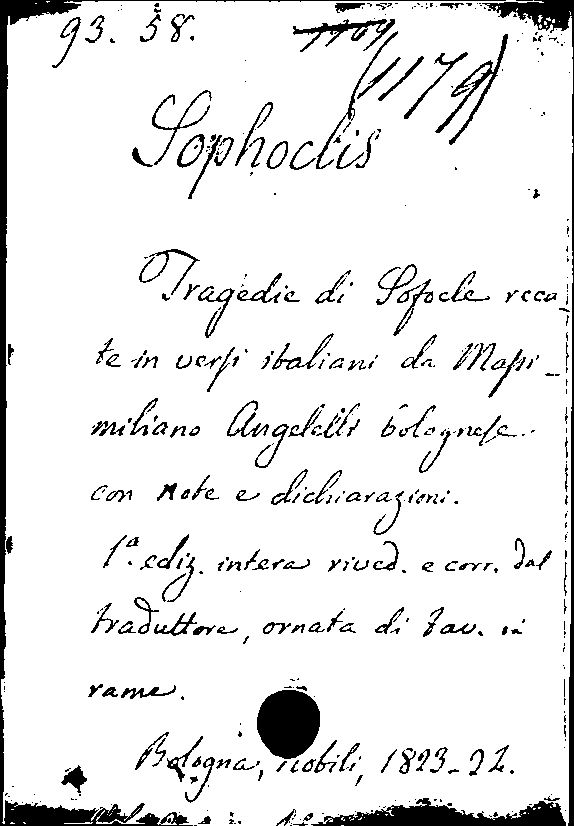 93. 58.
(1179)
Sophoclis
Tragedie di Sofocle reca-
te in versi italiani da Massi-
miliano Angelelli bolognese
con note e dichiarazioni.
1ª. ediz. intera rived. e corr. dal
traduttore, ornata di tav. in
rame.
Bologna, Nobili, 1823-24.